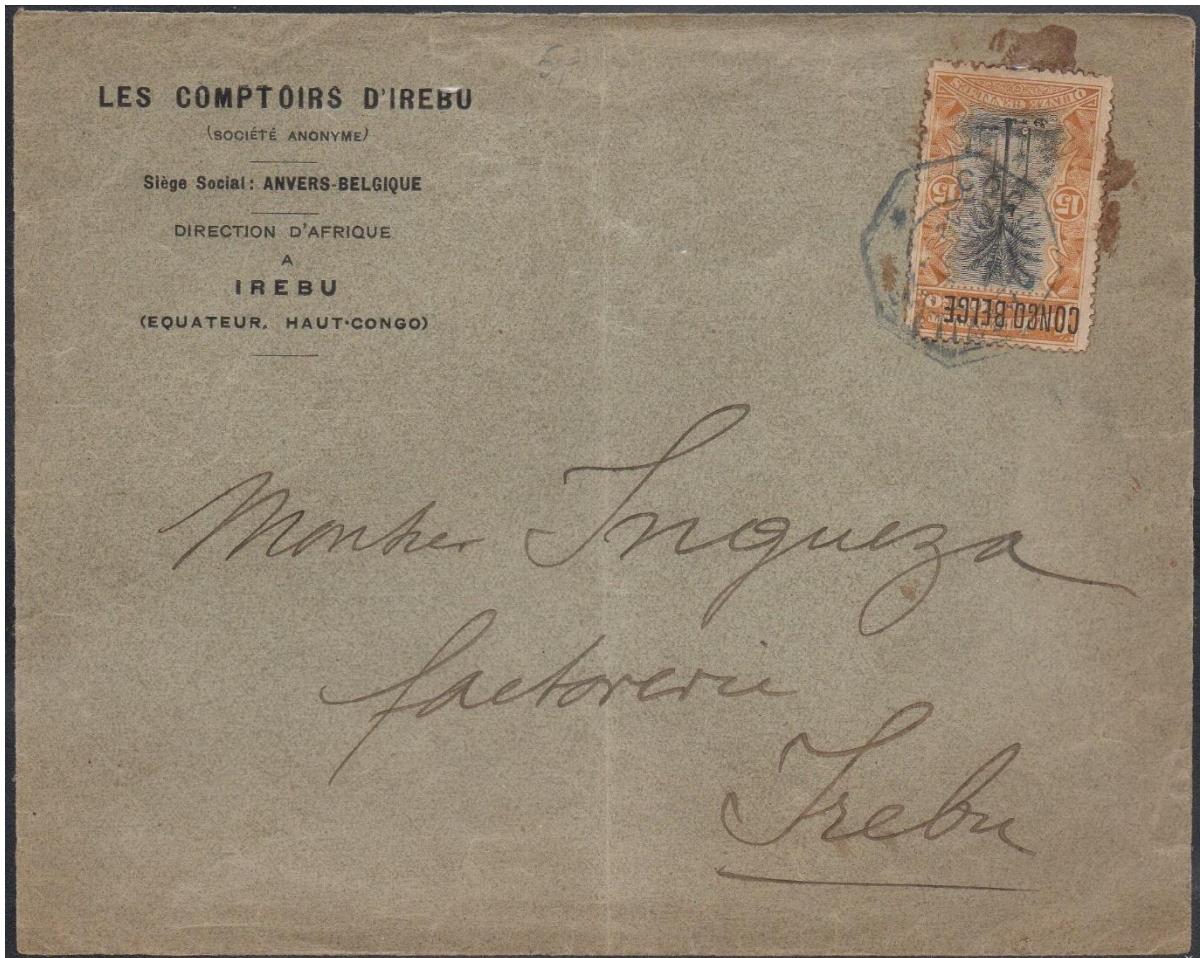 LES COMPTOIRS D'IREBU
(SOCIÉTÉ ANONYME)
Siège Social: ANVERS-BELGIQUE
DIRECTION D'AFRIQUE
A
IREBU
(EQUATEUR, HAUT-CONGO)
QUINZE CENTIMES
15 15
CONGO BELGE
Ingueza
factorerie
Irebu